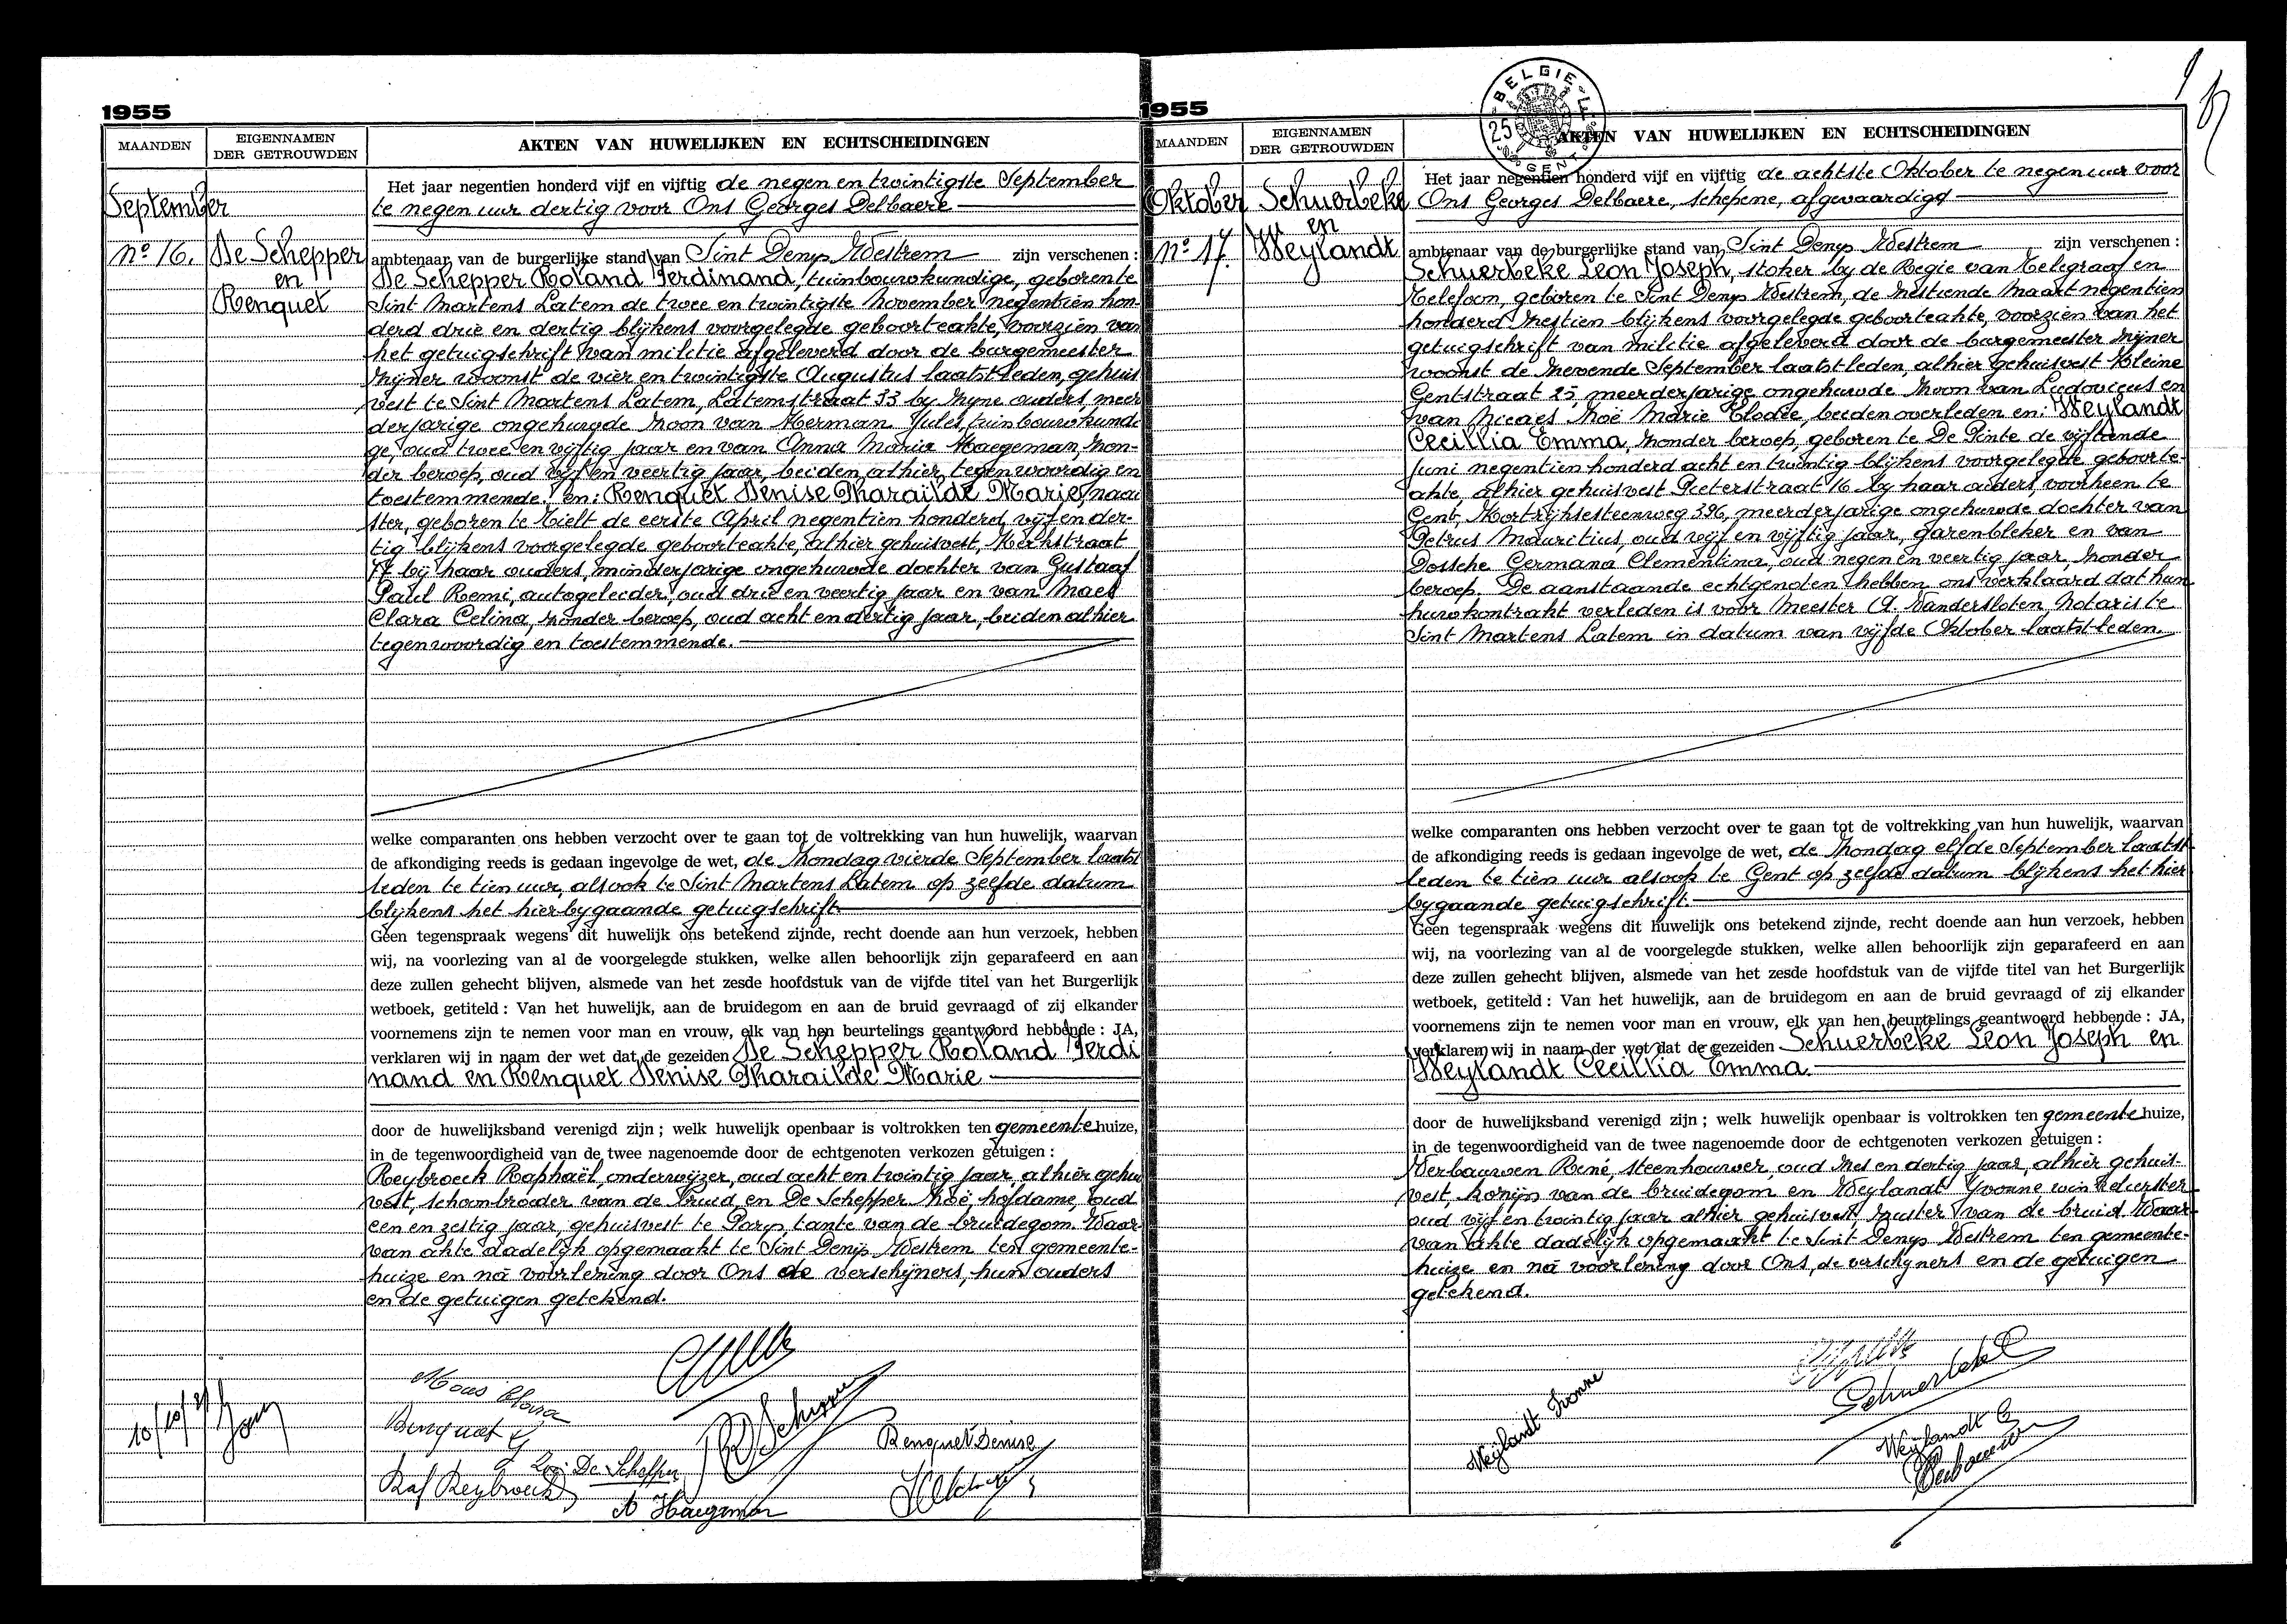 1955
MAANDEN
EIGENNAMEN
DER GETROUWDEN
AKTEN VAN HUWELIJKEN EN ECHTSCHEIDINGEN
September
No 16.
De Schepper
en
Renquet
Het jaar negentien honderd vijf en vijftig de negen en twintigste September
te negen uur dertig voor Ons Georges Delbaere
ambtenaar van de burgerlijke stand van Sint Denijs Westrem zijn verschenen :
De Schepper Roland Ferdinand, tuinbouwkundige, geboren te
Sint Martens Latem de twee en twintigste November negentien hon-
derd drie en dertig blijkens voorgelegde geboorteakte, voorzien van
het getuigschrift van militie afgeleverd door de burgemeester
zijner woonst de vier en twintigste Augustus laatst leden, gehuis
vest te Sint Martens Latem, Latemstraat 33 by zijne ouders, meer
derjarige ongehuwde zoon van Herman Jules, tuinbouwkundi
ge, oud twee en vijftig jaar en van Anna Maria Haegeman, zon-
der beroep, oud vijf en veertig jaar, beiden alhier tegenwoordig en
toestemmende. en: Renquet Denise Pharaïlde Marie, naai
ster, geboren te Tielt de eerste April negentien honderd vijf en der-
tig blijkens voorgelegde geboorteakte, alhier gehuisvest, Kerkstraat
77 bij haar ouders, minderjarige ongehuwde dochter van Gustaaf
Paul Remi, autogeleider, oud drie en veertig jaar en van Maes
Clara Celina, zonder beroep, oud acht en dertig jaar, beiden alhier
tegenwoordig en toestemmende.
welke comparanten ons hebben verzocht over te gaan tot de voltrekking van hun huwelijk, waarvan
de afkondiging reeds is gedaan ingevolge de wet, de zondag vierde September laatst
leden te tien uur, alsook te Sint Martens Latem op zelfde datum
blijkens het hierbygaande getuigschrift.
Geen tegenspraak wegens dit huwelijk ons betekend zijnde, recht doende aan hun verzoek, hebben
wij, na voorlezing van al de voorgelegde stukken, welke allen behoorlijk zijn geparafeerd en aan
deze zullen gehecht blijven, alsmede van het zesde hoofdstuk van de vijfde titel van het Burgerlijk
wetboek, getiteld : Van het huwelijk, aan de bruidegom en aan de bruid gevraagd of zij elkander
voornemens zijn te nemen voor man en vrouw, elk van hen beurtelings geantwoord hebbende : JA,
verklaren wij in naam der wet dat de gezeiden De Schepper Roland Ferdi
nand en Renquet Denise Pharaïlde Marie
door de huwelijksband verenigd zijn ; welk huwelijk openbaar is voltrokken ten gemeentehuize,
in de tegenwoordigheid van de twee nagenoemde door de echtgenoten verkozen getuigen :
Reybroeck Raphaël, onderwijzer, oud acht en twintig jaar, alhier gehui
vest, schoonbroeder van de bruid en De Schepper Zoë, hofdame, oud
een en zestig jaar, gehuisvest te Parys, tante van de bruidegom. Waar-
van akte dadelijk opgemaakt te Sint Denijs Westrem ten gemeente-
huize en na voorlezing door Ons de verschijners, hun ouders
en de getuigen getekend.
Renquet G
Zoë De Schepper
Renquet Denise
Raf Reybroeck
A Haegeman
1955
BELGIE
25
GENT
MAANDEN
EIGENNAMEN
DER GETROUWDEN
AKTEN VAN HUWELIJKEN EN ECHTSCHEIDINGEN
Oktober
No 17.
Schuerbeke
en
Weylandt
Het jaar negentien honderd vijf en vijftig de achtste Oktober te negen uur voor
Ons Georges Delbaere, schepene, afgevaardigd
ambtenaar van de burgerlijke stand van Sint Denys Westrem zijn verschenen :
Schuerbeke Leon Joseph, stoker by de Regie van Telegraaf en
Telefoon, geboren te Sint Denys Westrem, de zestiende Maart negentien
honderd zestien blijkens voorgelegde geboorteakte, voorzien van het
getuigschrift van militie afgeleverd door de burgemeester zijner
woonst de zevende September laatst leden, alhier gehuisvest Kleine
Gentstraat 25, meerderjarige ongehuwde zoon van Ludovicus en
van Nicaes Zoë Marie Elodie, beiden overleden en: Weylandt
Cecillia Emma, zonder beroep, geboren te De Pinte de vijftiende
Juni negentien honderd acht en twintig blijkens voorgelegde geboorte-
akte, alhier gehuisvest Pieterstraat 16 by haar ouders, voorheen te
Gent, Kortrijksesteenweg 396, meerderjarige ongehuwde dochter van
Petrus Mauritius, oud vijf en vijftig jaar, garenbleker en van
Dossche Germana Clementina, oud negen en veertig jaar, zonder
beroep. De aanstaande echtgenoten hebben ons verklaard dat hun
huwkontrakt verleden is voor Meester A. Vandersloten, Notaris te
Sint Martens Latem in datum van vijfde Oktober laatst leden.
welke comparanten ons hebben verzocht over te gaan tot de voltrekking van hun huwelijk, waarvan
de afkondiging reeds is gedaan ingevolge de wet, de zondag elfde September laatst
leden te tien uur alsook te Gent op zelfde datum blijkens het hier
bygaande getuigschrift.
Geen tegenspraak wegens dit huwelijk ons betekend zijnde, recht doende aan hun verzoek, hebben
wij, na voorlezing van al de voorgelegde stukken, welke allen behoorlijk zijn geparafeerd en aan
deze zullen gehecht blijven, alsmede van het zesde hoofdstuk van de vijfde titel van het Burgerlijk
wetboek, getiteld : Van het huwelijk, aan de bruidegom en aan de bruid gevraagd of zij elkander
voornemens zijn te nemen voor man en vrouw, elk van hen beurtelings geantwoord hebbende : JA,
verklaren wij in naam der wet dat de gezeiden Schuerbeke Leon Joseph en
Weylandt Cecillia Emma.
door de huwelijksband verenigd zijn ; welk huwelijk openbaar is voltrokken ten gemeentehuize,
in de tegenwoordigheid van de twee nagenoemde door de echtgenoten verkozen getuigen :
Verbauwen René, steenhouwer, oud zes en dertig jaar, alhier gehuis-
vest kozijn van de bruidegom en Weylandt Yvonne winkelierster
oud vijf en twintig jaar alhier gehuisvest, zuster van de bruid. Waar-
van akte dadelijk opgemaakt te Sint Denys Westrem ten gemeente-
huize en na voorlezing door Ons, de verschyners en de getuigen
getekend.
Weylandt Ivonne
Schuerbeke L
Weylandt C